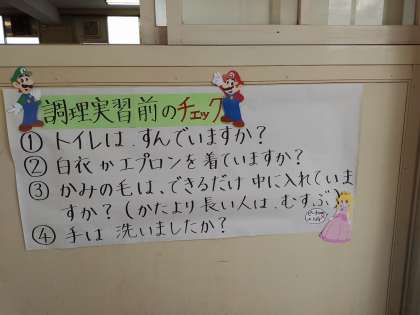 調理実習前のチェック
① トイレは、すんでいますか？
② 白衣かエプロンを着ていますか？
③ かみの毛は、できるだけ中に入れていま
すか？（かたより長い人は、むすぶ）
④ 手は洗いましたか？